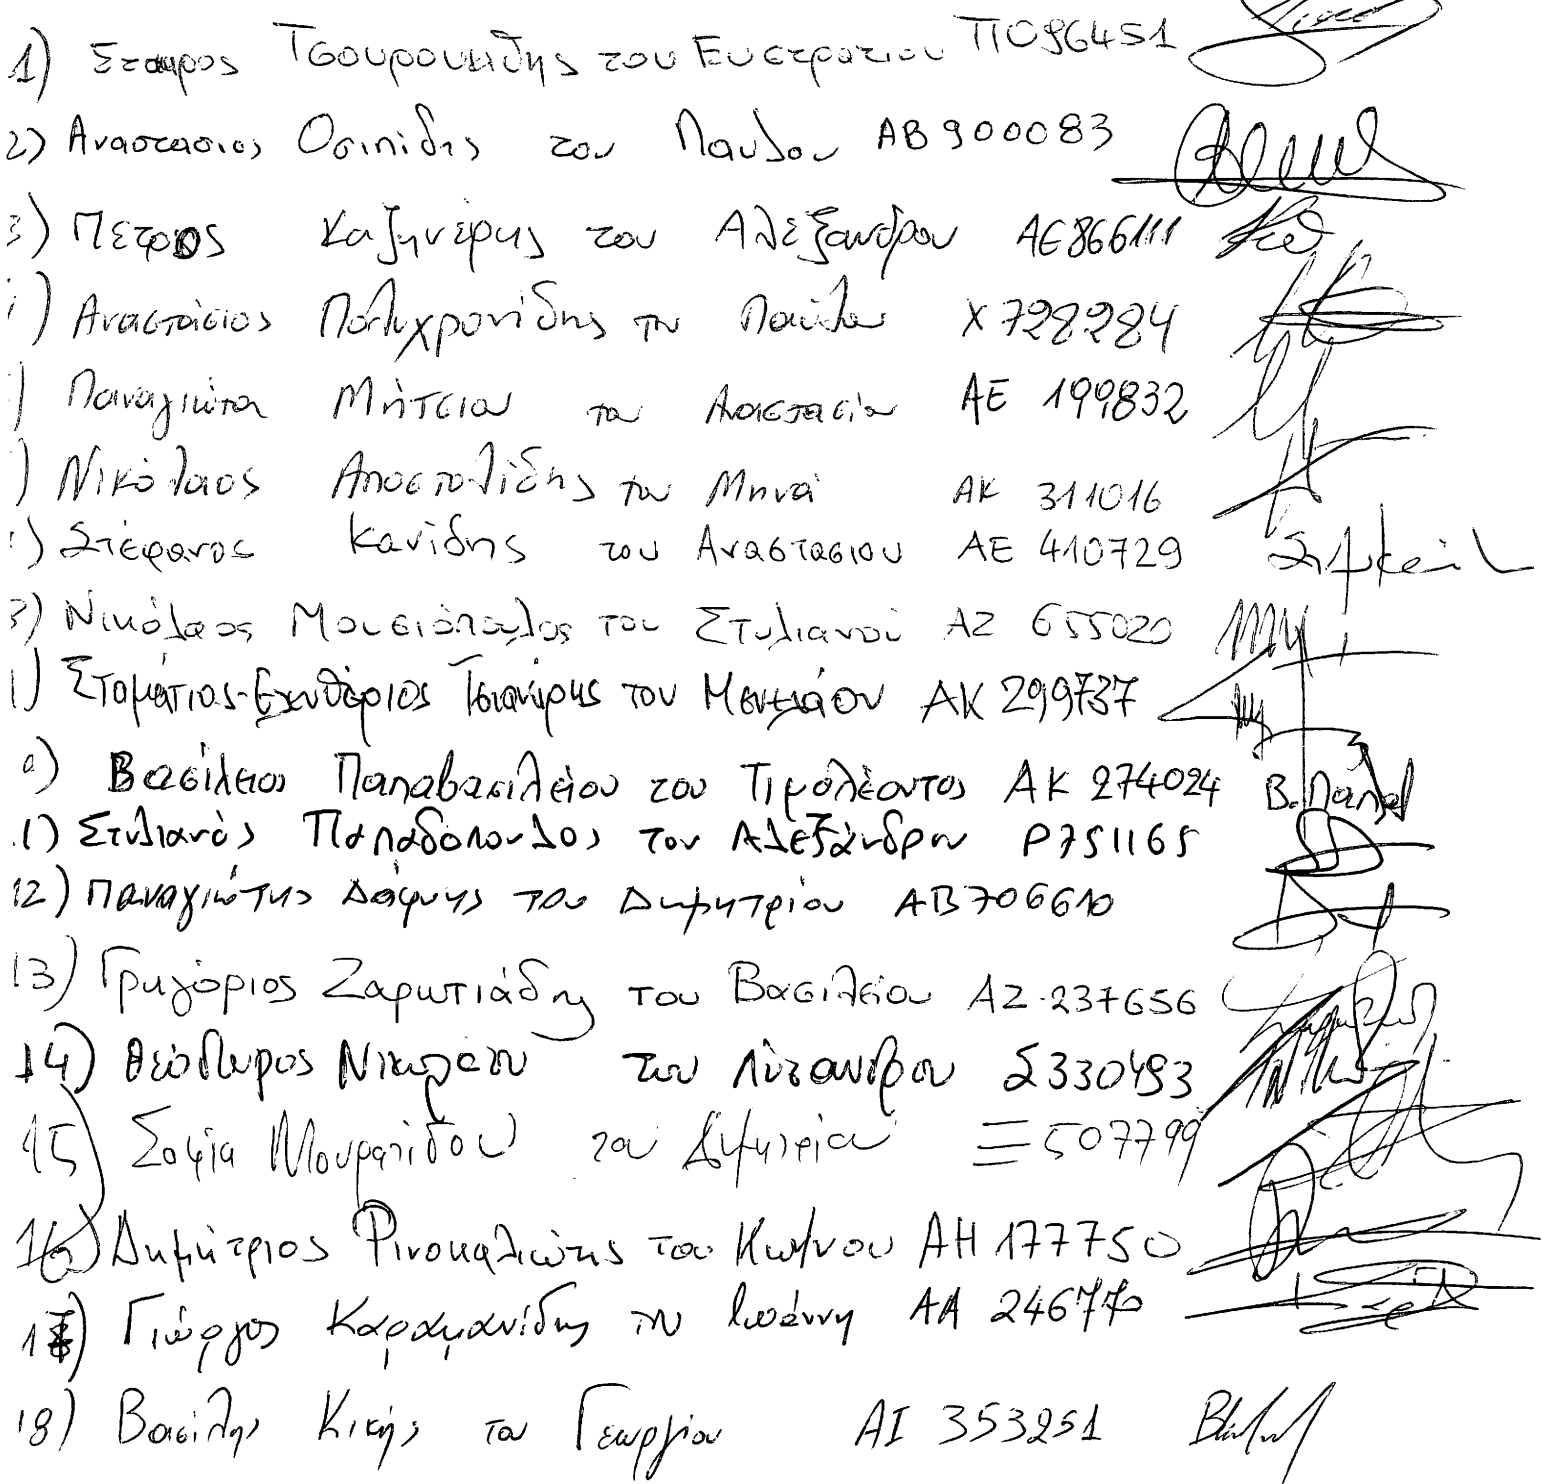 1) Σταυρος Τσουρουκιδης του Ευστρατιου Π096451
2) Αναστασιος Οσιπιδης του Παυλου ΑΒ 900083
3) Πετρος Καζηνέρης του Αλεξανδρου ΑΕ866111
) Αναστάσιος Πολυχρονίδης του Παύλου Χ 728284
) Παναγιώτα Μήτσιου του Αναστασίου ΑΕ 199832
) Νικόλαος Αποστολίδης του Μηνά ΑΚ 311016
) Στέφανος Κανίδης του Αναστασιου ΑΕ 410729
) Νικόλαος Μουσιόπουλος του Στυλιανού ΑΖ 655020
) Σταμάτιος-Ελευθέριος Τσιανύρης του Μενελάου ΑΚ 299737
0) Βασίλειος Παπαβασιλείου του Τιμολέοντος ΑΚ 274024 Β. Παπαβ
11) Στυλιανός Παπαδόπουλος του Αλεξάνδρου Ρ751165
12) Παναγιώτης Δάφνης του Δημητρίου ΑΒ706610
13) Γρηγόριος Ζαρωτιάδης του Βασιλείου ΑΖ.237656
14) Θεόδωρος Νικολάου του Λύσανδρου Σ330493
15) Σοφία Μουρατίδου του Δημητρίου Ξ 507799
16) Δημήτριος Ρινοκαλιώτης του Κων/νου ΑΗ 177750
17) Γιώργος Καραμανίδης του Ιωάννη ΑΑ 246770
18) Βασίλης Κικής του Γεωργίου ΑΙ 353251